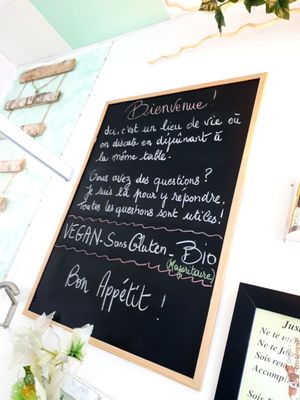 Bienvenue !
Ici, c'est un lieu de vie où
on discute en déjeunant à
la même table.
Vous avez des questions ?
Je suis là pour y répondre,
Toutes les questions sont utiles !
VEGAN - Sans Gluten - Bio
(Majoritaire)
Bon Appétit !
Ne te
Ne te
Sois
Accompl
Sois